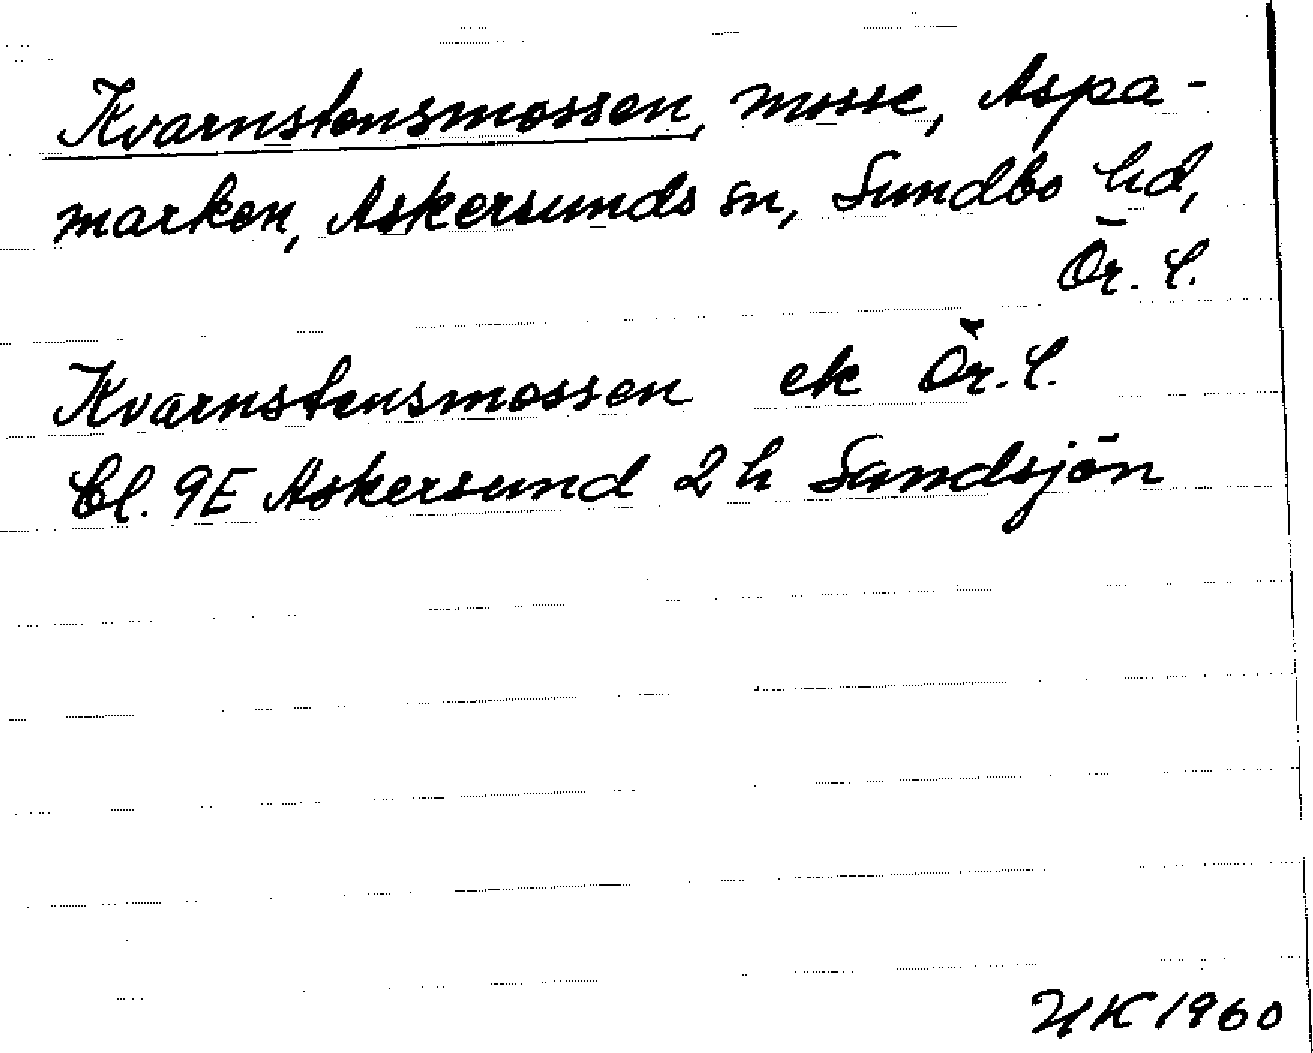 Kvarnstensmossen, mosse, Aspa-
marken, Askersunds sn, Sundbo hd,
Ör. l.
Kvarnstensmossen ek Ör. l.
Bl. 9E Askersund 2 h Sandsjön
HK 1960